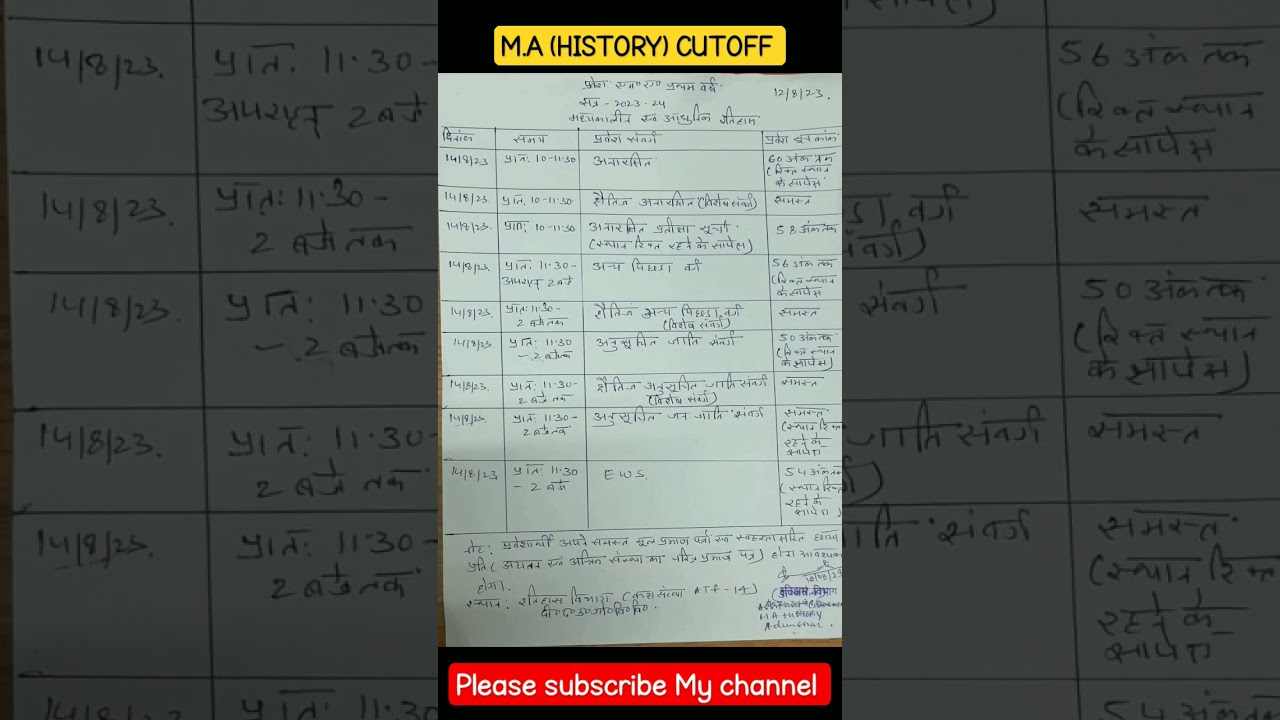 M.A (HISTORY) CUTOFF
प्रवेश एम०ए० प्रथम वर्ष
12/8/23.
सत्र - 2023-24
मध्यकालीन एवं आधुनिक इतिहास
दिनांक समय प्रवेश संवर्ग प्रवेश इन्डेक्स
14/8/23 प्रातः 10-11:30 अनारक्षित 60 अंक तक
(रिक्त स्थान
के सापेक्ष
14/8/23 प्रातः 10-11:30 क्षैतिज अनारक्षित (विशेष संवर्ग) समस्त
14/8/23. प्रातः 10-11:30 अनारक्षित प्रतीक्षा सूची 58 अंक तक
(स्थान रिक्त रहने के सापेक्ष)
14/8/23. प्रातः 11:30- अन्य पिछड़ा वर्ग 56 अंक तक
अपराह्न 2 बजे (रिक्त स्थान
के सापेक्ष
14/8/23. प्रातः 11:30- क्षैतिज अन्य पिछड़ा वर्ग समस्त
2 बजे तक (विशेष संवर्ग)
14/8/23. प्रातः 11:30 अनुसूचित जाति संवर्ग 50 अंक तक
- 2 बजे तक (रिक्त स्थान
के सापेक्ष)
14/8/23. प्रातः 11:30- क्षैतिज अनुसूचित जाति संवर्ग समस्त
2 बजे तक (विशेष संवर्ग)
14/8/23. प्रातः 11:30- अनुसूचित जन जाति संवर्ग समस्त
2 बजे तक (स्थान रिक्त
रहने के
सापेक्ष
14/8/23 प्रातः 11:30 EWS. 54 अंक तक
- 2 बजे (स्थान रिक्त
रहने के
सापेक्ष)
नोट: प्रवेशार्थी अपने समस्त मूल प्रमाण पत्रों एवं स्वहस्ताक्षरित छाया
प्रति (अद्यतन एवं अन्तिम संस्था का चरित्र प्रमाण पत्र) होना आवश्यक
होगा।
12/08/23
स्थान: इतिहास विभाग (कक्ष संख्या ATF-14)
इतिहास विभाग
दी०द०उ०गो०वि०वि०
M A HISTORY
Please subscribe My channel